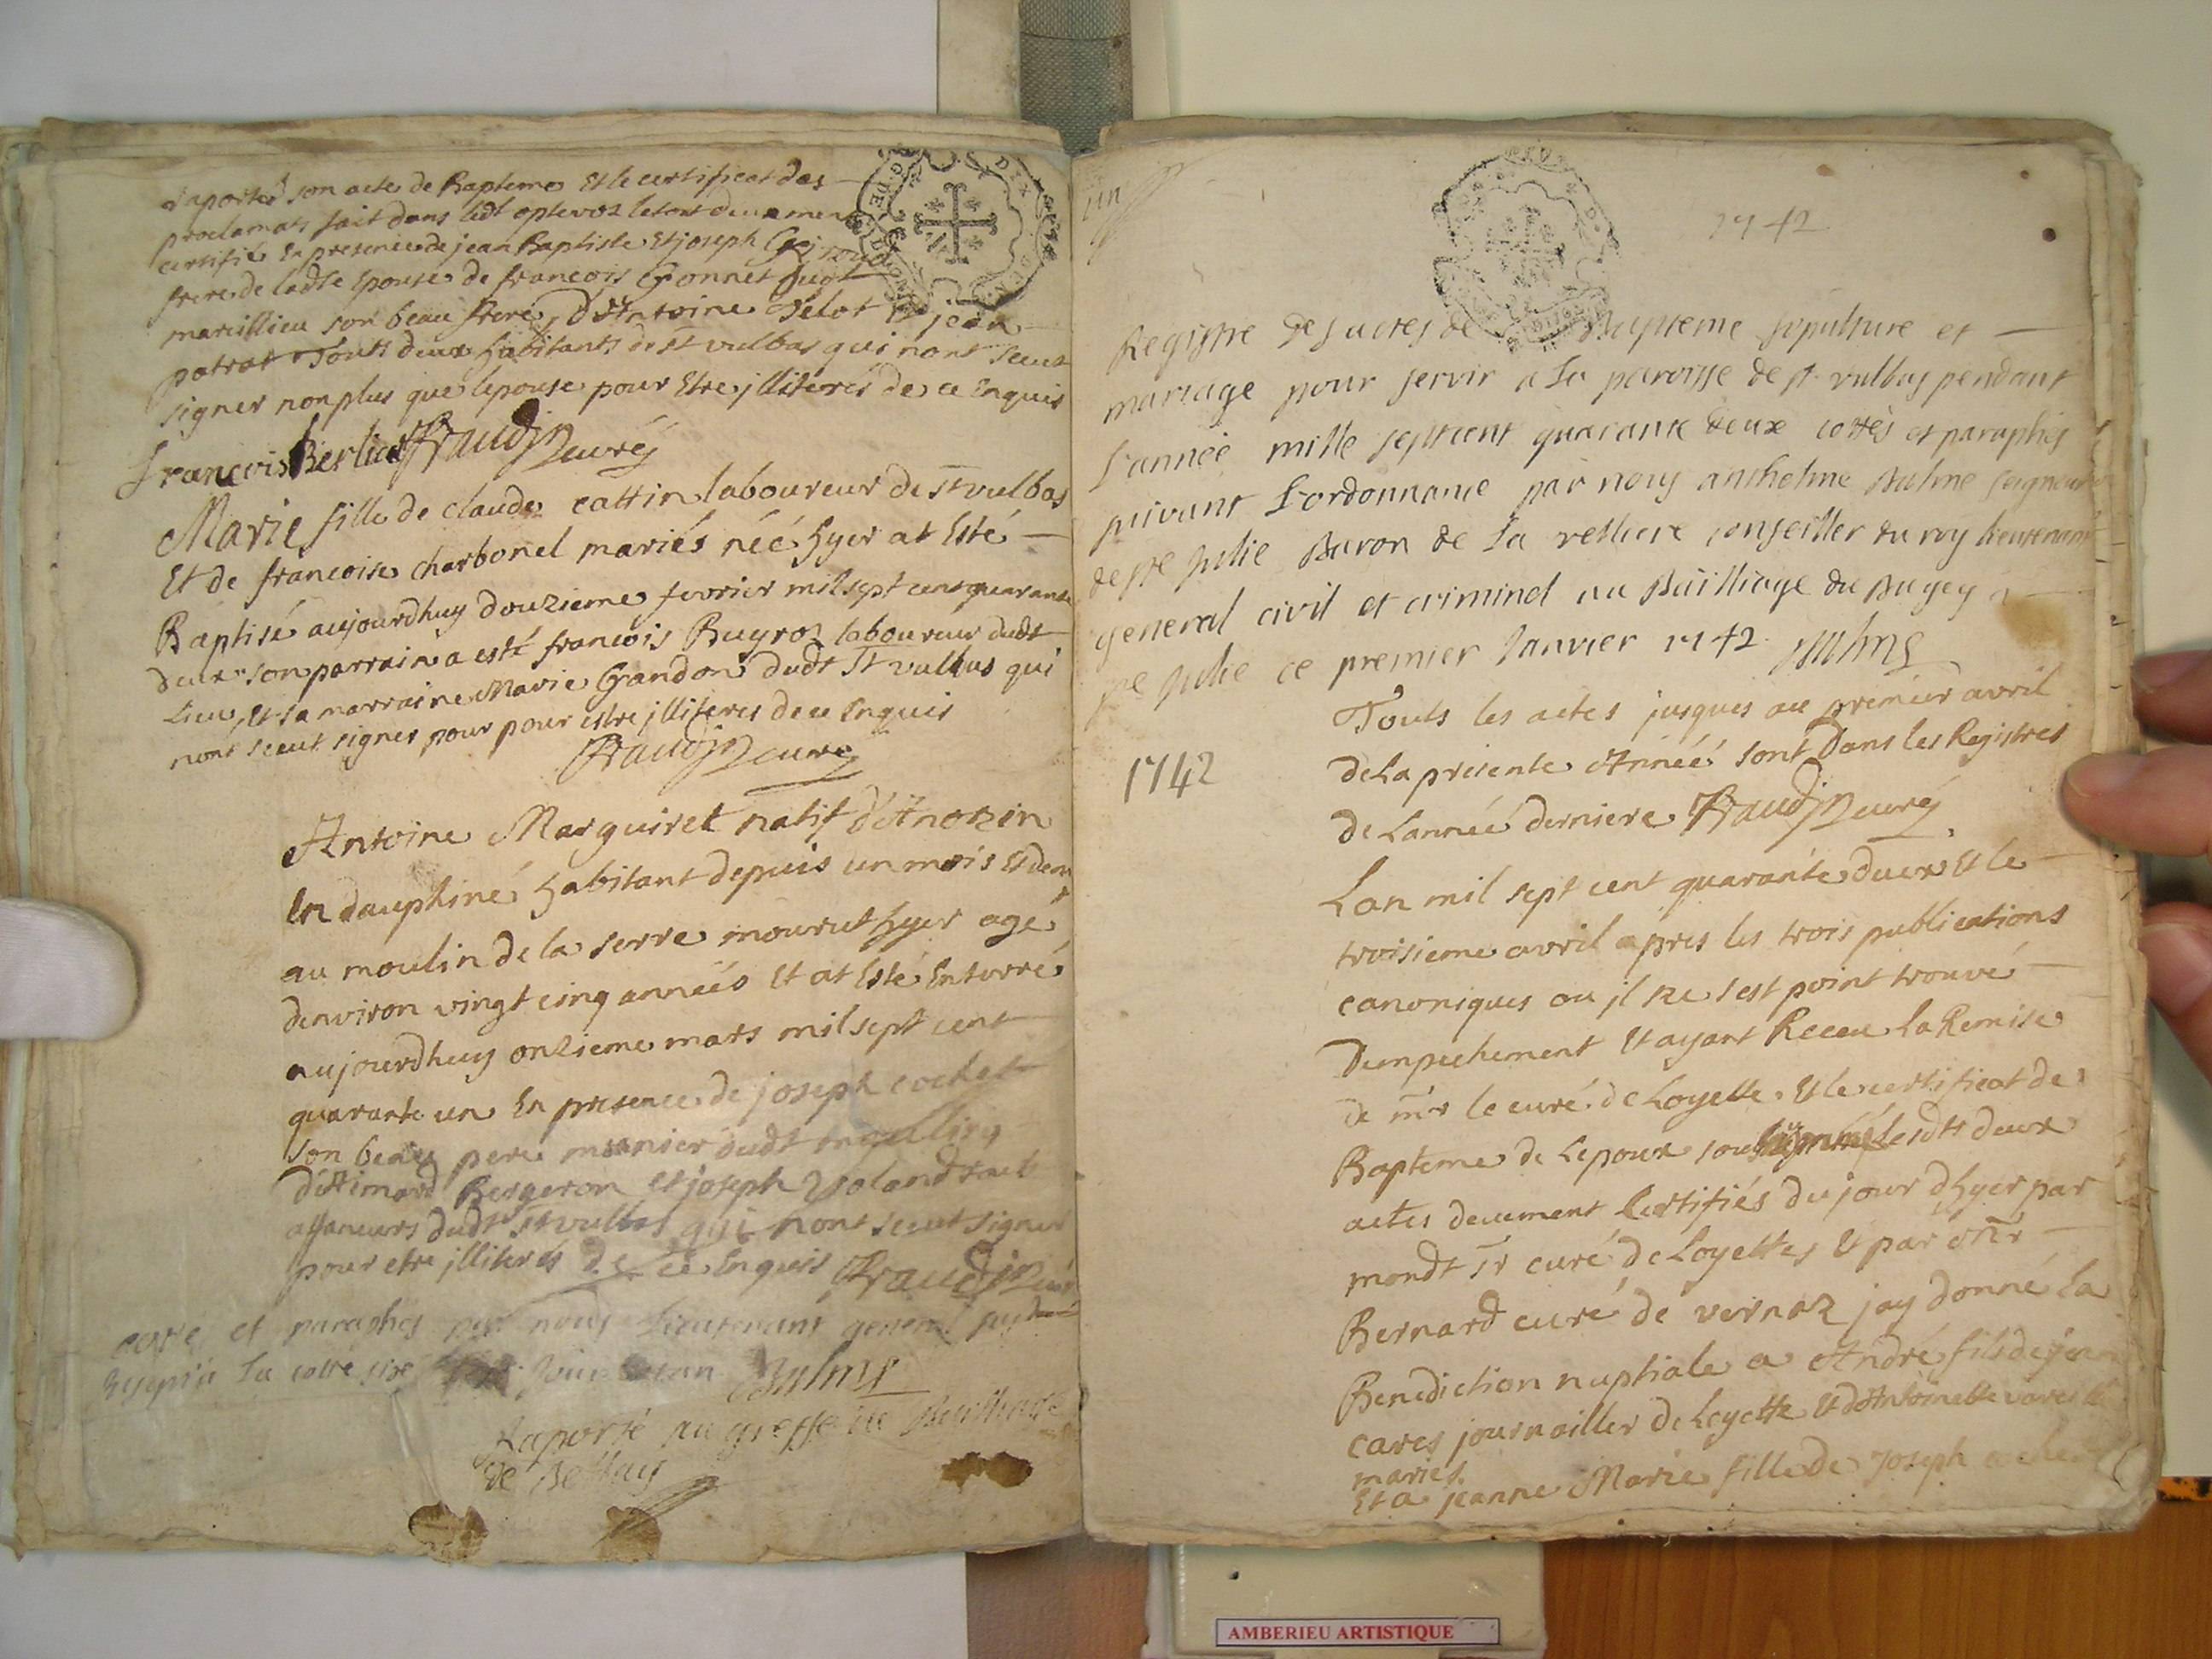 raporté son acte de Bapteme Et le certificat des
proclamats fait dans ledt optevoz le tout deuement
certifié En presence de jean Baptiste Et joseph
frere de ladte Epouse de francois Gonnet dudt
marcillieu son beau frere, d'Antoine Velot Et jean
patrat Touts deux habitants de St vulbas qui nont sceut
signer non plus que lepouse pour Etre jlliterés de ce Enquis
francois Berliat Raudin curé
Marie fille de claude cattin laboureur de St vulbas
Et de francoise charbonel mariés néé hyer at Esté
Baptisé aujourdhuy douzieme fevrier mil sept cent quarante
deux son parrain a esté francois Buyroz laboureur dudt
Lieu, Et sa marraine Marie Grandon dudt St vulbas qui
nont sceut signer pour pour estre jlliteres de ce Enquis
Raudin curé
Antoine Marguiret natif d'Anozin
En dauphiné habitant depuis un mois Et demy
au moulin de la serre mourut hyer agé
denviron vingt cinq annéés Et at Esté Enterré
aujourdhuy onzieme mars mil sept cent
quarante un En presence de joseph cochet
son beau pere munier dudt moulin
d'Aimard Bergeron Et joseph
affaneurs dudt St vulbas qui nont sceut signer
pour etre jlliterés de ce Enquis Raudin curé
cotté et paraphés par nous Lieutenant general
la cotte six Balme
Raporté au greffe du Bailliage
de Bellay
un
1742
Registre des actes de Bapteme sepulture et
mariage pour servir a la paroisse de st vulbas pendant
l'année mille septcent quarante deux cottés et paraphés
suivant l'ordonnance par nous anthelme Balme seigneur
de ste julie Baron de la velliere conseiller du roy lieutenant
general civil et criminel au Bailliage du Bugey a
ste julie ce premier janvier 1742 Balme
Touts les actes jusques au premier avril
de La presente Annéé sont dans les Registres
de Lannéé derniere Raudin curé
1742
Lan mil sept cent quarante deux Et le
troisieme avril apres les trois publications
canoniques ou jl ne sest point trouvé
dempechement Et ayant Receu la Remise
de mr le curé de Loyette Et le certificat de
Bapteme de Lepoux lesdts deux
actes deuement Certifiés du jour dhyer par
mondt sr curé de Loyettes Et par mr
Bernard curé de vernaz jay donné la
Benediction nuptiale a André fils de jean
cares journailler de Loyette Et d'Antoinette
mariés.
Et a jeanne Marie fille de joseph cochet
AMBERIEU ARTISTIQUE